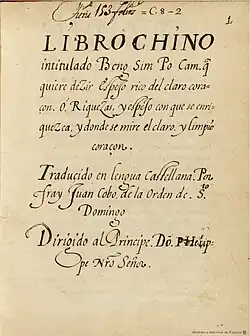 Tiene 153 folios = C. 8 - 2
1
LIBRO CHINO
intitulado Beng Sim Po Cam. q̃
quiere dezir Espejo rico del claro cora-
çon. O, Riquezas, y espejo con que se enri-
quezca, y donde se mire el claro, y limpio
coraçon.
Traducido en lengua Castellana. Por
fray Juan Cobo, de la Orden de S.to
Domingo
Dirigido al Principe. Dõ. PHelip-
pe Nro Señor.